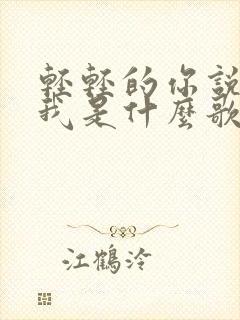 輕輕的你說
我是什麼歌
江鶴泠